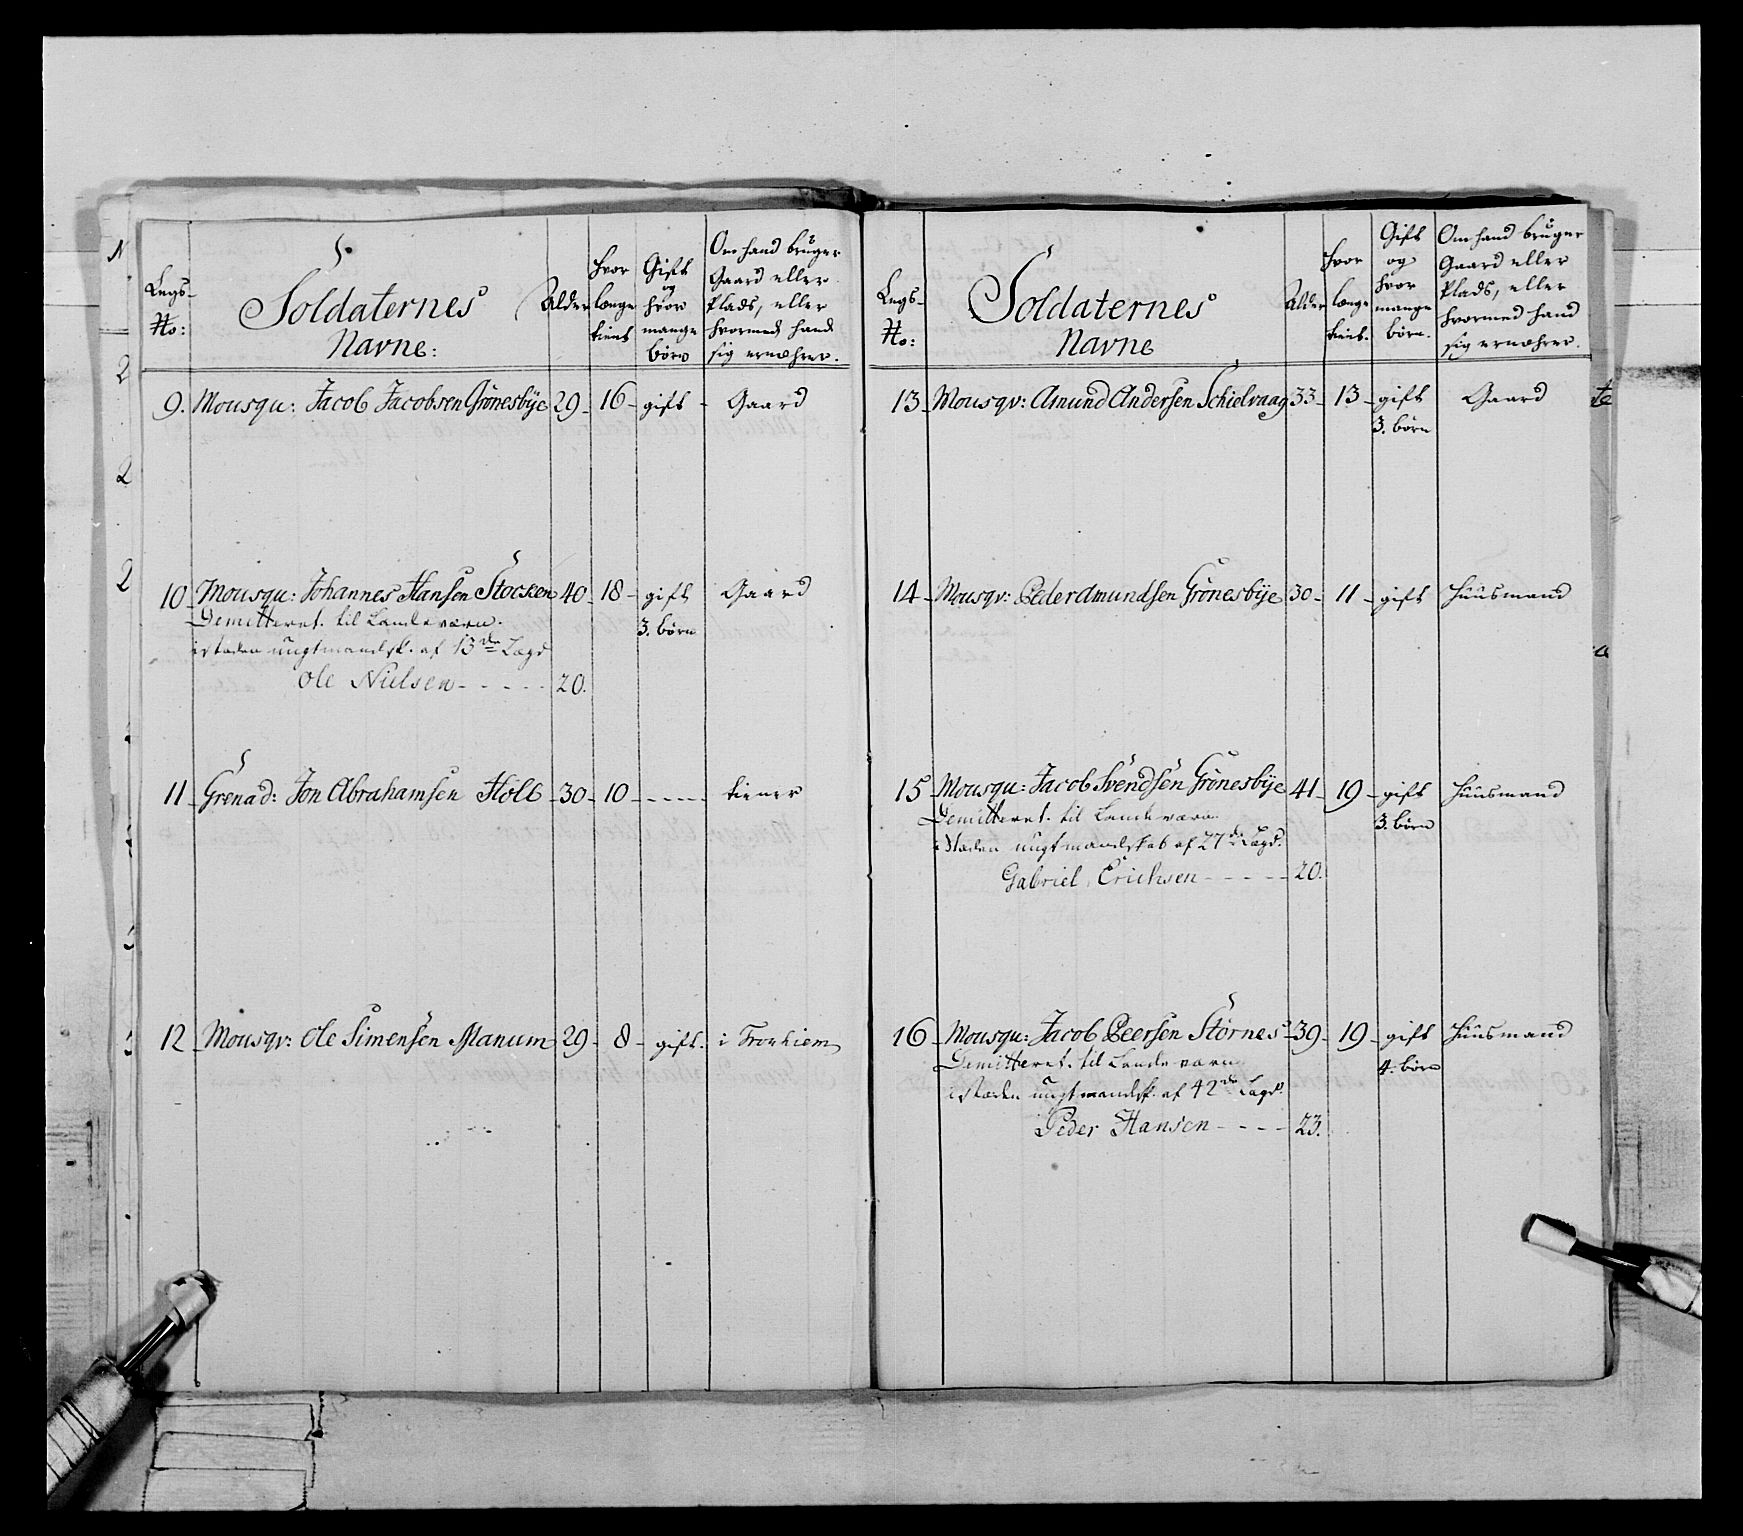 Legs-
No:
Soldaternes
Navne:
Alder
hvor
længe
tient
Gift
og
hvor
mange
børn
Om hand bruger
Gaard eller
Plads, eller
hvormed hand
sig ernæhrer.
9. Mousqu: Jacob Jacobsen Grönesbÿe 29 - 16 - gift - Gaard
10 Mousqu: Johannes Hansen Stocken 40 - 18 - gift Gaard
Demitteret til Landeværn. 3. børn
istæden ungtmandsk. af 13de Lægd
Ole Nielsen - - - - - 20.
11 Grenad: Jon Abrahamsen Holt - 30 - 10 - - - - - tiener
12 Mousqv: Ole Simensen Manum 29 - 8 - gift. i Tronhiem
Legs-
No:
Soldaternes
Navne
Alder
hvor
længe
tient.
Gift
og
hvor
mange
børn.
Om hand bruger
Gaard eller
Plads, eller
hvormed hand
sig ernæhrer.
13 Mousqv: Amund Andersen Schielvaag 33 - 13 - gift Gaard
3. børn
14 - Mousqv: Peder Amundsen Grönesbÿe 30 - 11 - gift Huusmand
15 Mousqu: Jacob Svendsen Grönesbÿe 41 - 19 - gift Huusmand
Demitteret til Landeværn 3. børn
istæden ungtmandskab af 27de Lægd.
Gabriel Erichsen - - - - - 20.
16 - Mousqu: Jacob Peersen Störnes - 39 - 19 - gift Huusmand
Demitteret til Landeværn 4. børn
istæden ungtmandsk. af 42de Lægd.
Peder Hansen - - - - 23.